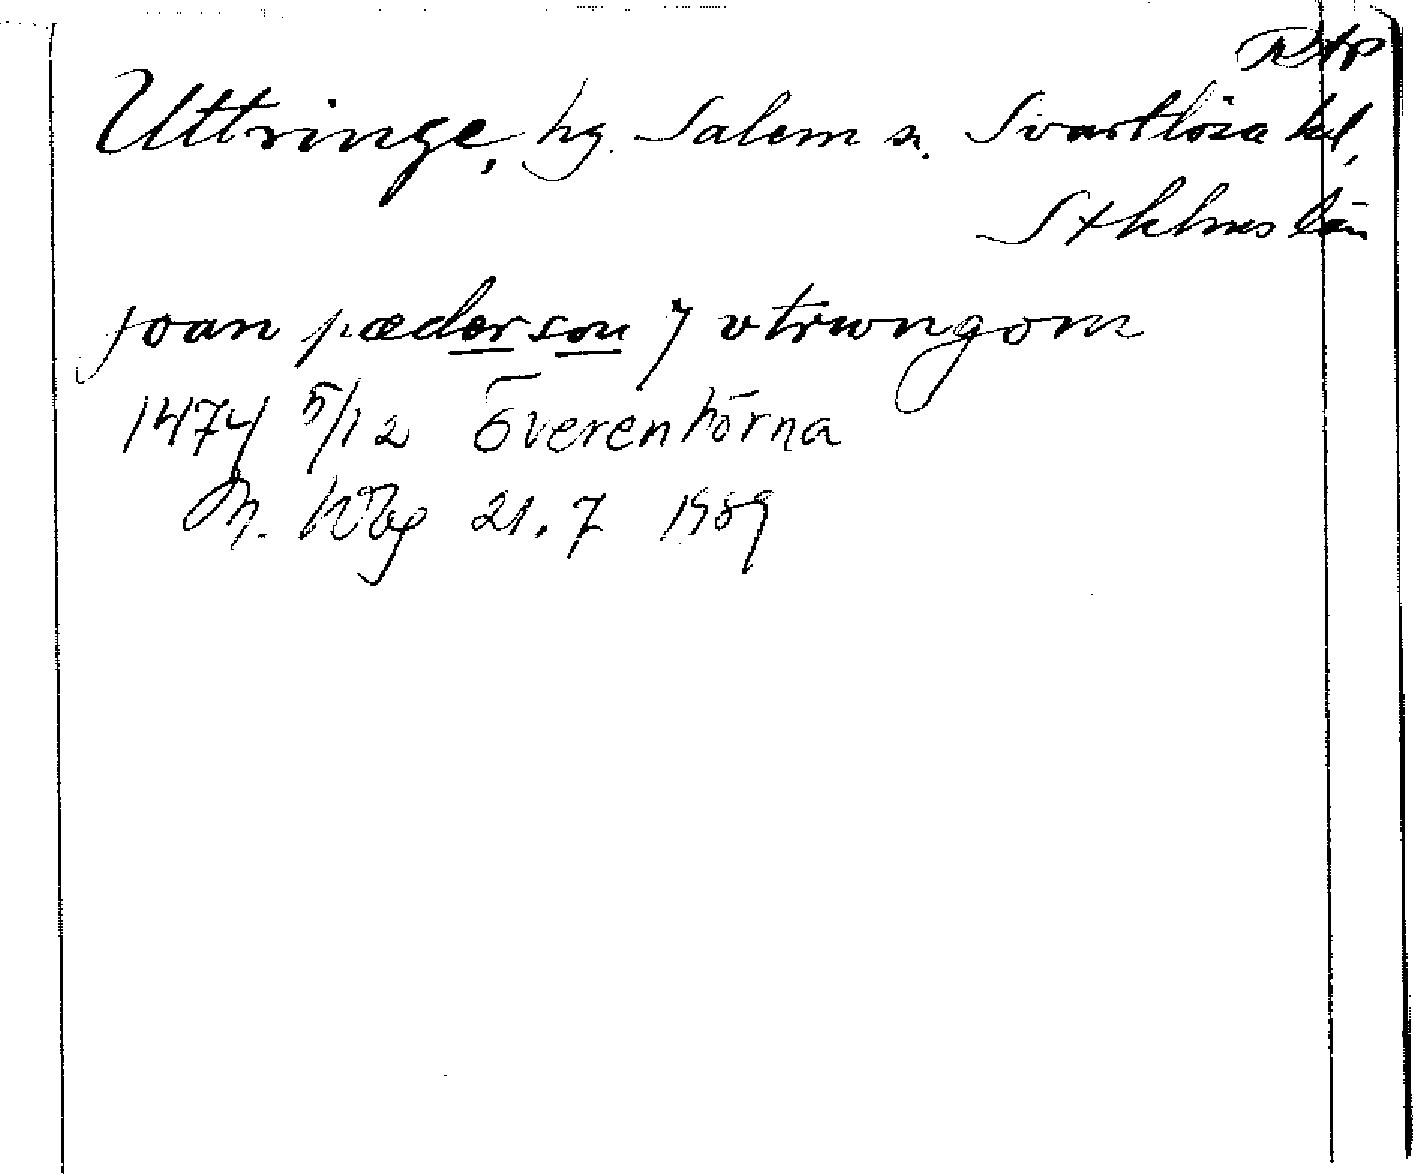 Rtp
Uttringe, hg. Salem sn. Svartlösa hd,
Sthlms län
joan pæderson j vtrwngom
1474 5/12 Överenhörna
M. Wbg 21.7 1989